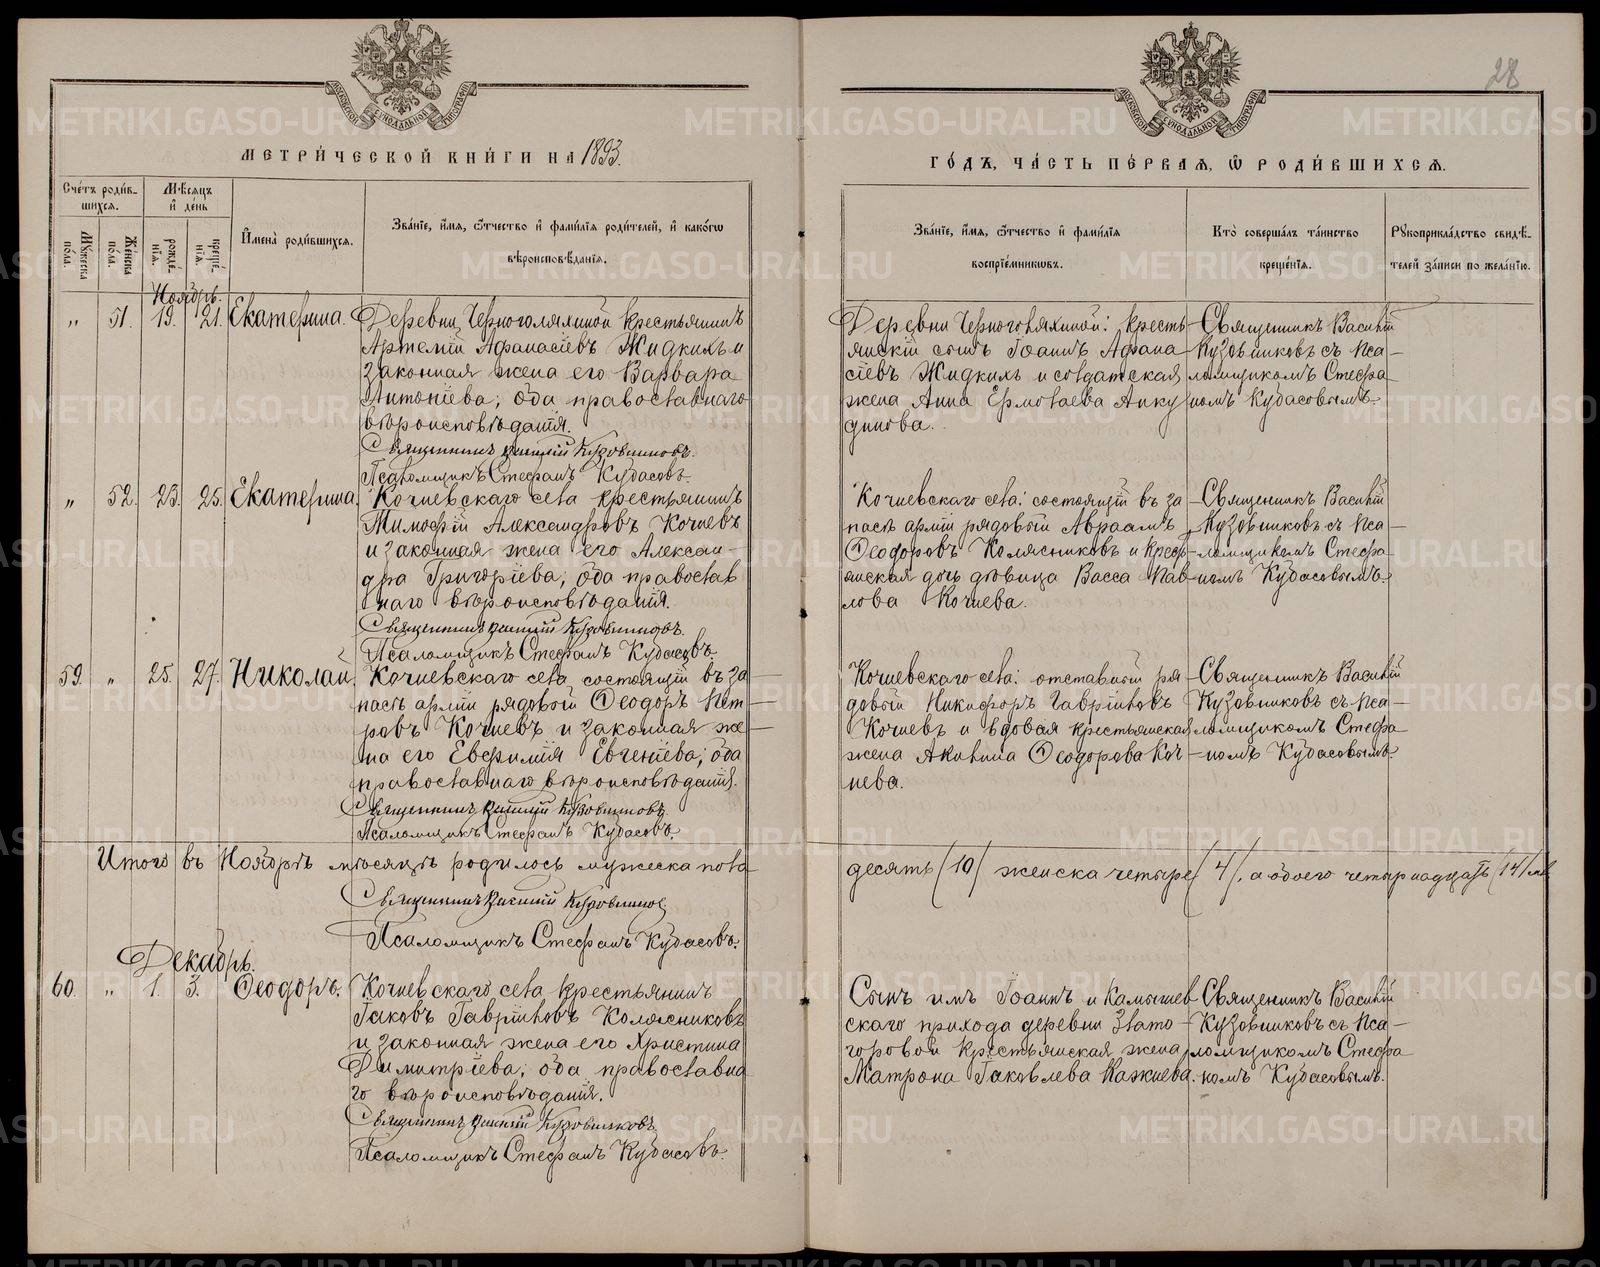 28
МЕТРИ́ЧЕСКОЙ КНИ́ГИ НА 1893.
ГО́ДЪ, ЧА́СТЬ ПЕ́РВАЯ, Ѿ РОДИ́ВШИХСѦ.
Сче́тъ роди́в-
шихся.
Мѣ́сяцъ
и҆ де́нь
Мꙋжеска
пола.
Женска
пола.
рожде́-
нїя.
креще́-
нїя.
И҆мена̀ роди́вшихся.
Зва́нїе, и҆́мя, ѻ҆́тчество и҆ фами́лїя роди́телей, и҆ како́гѡ
вѣроисповѣ́данїя.
Зва́нїе, и҆́мя, ѻ҆́тчество и҆ фами́лїя
воспрїе́мникѡвъ.
Кто̀ соверша́лъ та́инство
креще́нїя.
Рꙋкоприкла́дство свидѣ́-
телей за́писи по жела́нїю.
Ноябрь.
" 51. 19. 21. Екатерина.
Деревни Черноголяхиной крестьянинъ
Артемій Афанасіевъ Жидкихъ и
законная жена его Варвара
Антоніева; оба православнаго
вѣроисповѣданія.
Священникъ Василій Кузовниковъ.
Псаломщикъ Стефанъ Кубасовъ.
Деревни Черноголяхиной: кресть-
янскій сынъ Іоаннъ Афана
сіевъ Жидкихъ и солдатская
жена Анна Ермолаева Анку
динова.
Священникъ Василій
Кузовниковъ съ Пса-
ломщикомъ Стефа-
номъ Кубасовымъ.
" 52. 23. 25. Екатерина.
Кочневскаго села крестьянинъ
Тимофій Александровъ Кочневъ
и законная жена его Алексан-
дра Григоріева; оба православ
наго вѣроисповѣданія.
Священникъ Василій Кузовниковъ.
Псаломщикъ Стефанъ Кубасовъ.
Кочневскаго села: состоящій въ за
пасѣ арміи рядовый Авраамъ
Ѳеодоровъ Колясниковъ и крестъ-
янская дочь дѣвица Васса Пав-
лова Кочнева.
Священникъ Василій
Кузовниковъ съ Пса-
ломщикомъ Стефа-
номъ Кубасовымъ.
59. " 25. 27. Николай.
Кочневскаго села состоящій въ за-
пасѣ арміи рядовый Ѳеодоръ Пет-
ровъ Кочневъ и законная же-
на его Евфимія Евгеніева; оба
православнаго вѣроисповѣданія.
Священникъ Василій Кузовниковъ
Псаломщикъ Стефанъ Кубасовъ.
Кочневскаго села: отставный ря-
довый Никифоръ Гавріиловъ
Кочневъ и вдовая крестьянская
жена Акилина Ѳеодорова Коч-
нева.
Священникъ Василій
Кузовниковъ съ Пса-
ломщикомъ Стефа-
номъ Кубасовымъ.
Итого въ Ноябрѣ мѣсяцѣ родилось мужеска пола
десять (10) женска четыре (4), а обоего четырнадцать (14)
Священникъ Василій Кузовниковъ
Псаломщикъ Стефанъ Кубасовъ.
Декабрь.
60. " 1. 3. Ѳеодоръ.
Кочневскаго села крестьянинъ
Іаковъ Гавріиловъ Колясниковъ
и законная жена его Христина
Димитріева; оба православна
го вѣроисповѣданія.
Священникъ Василій Кузовниковъ.
Псаломщикъ Стефанъ Кубасовъ.
Сынъ имъ Іоаннъ и Камышев
скаго прихода деревни Злато-
горовой крестьянская жена
Матрона Іаковлева Кажнева.
Священникъ Василій
Кузовниковъ съ Пса-
ломщикомъ Стефа
номъ Кубасовымъ.